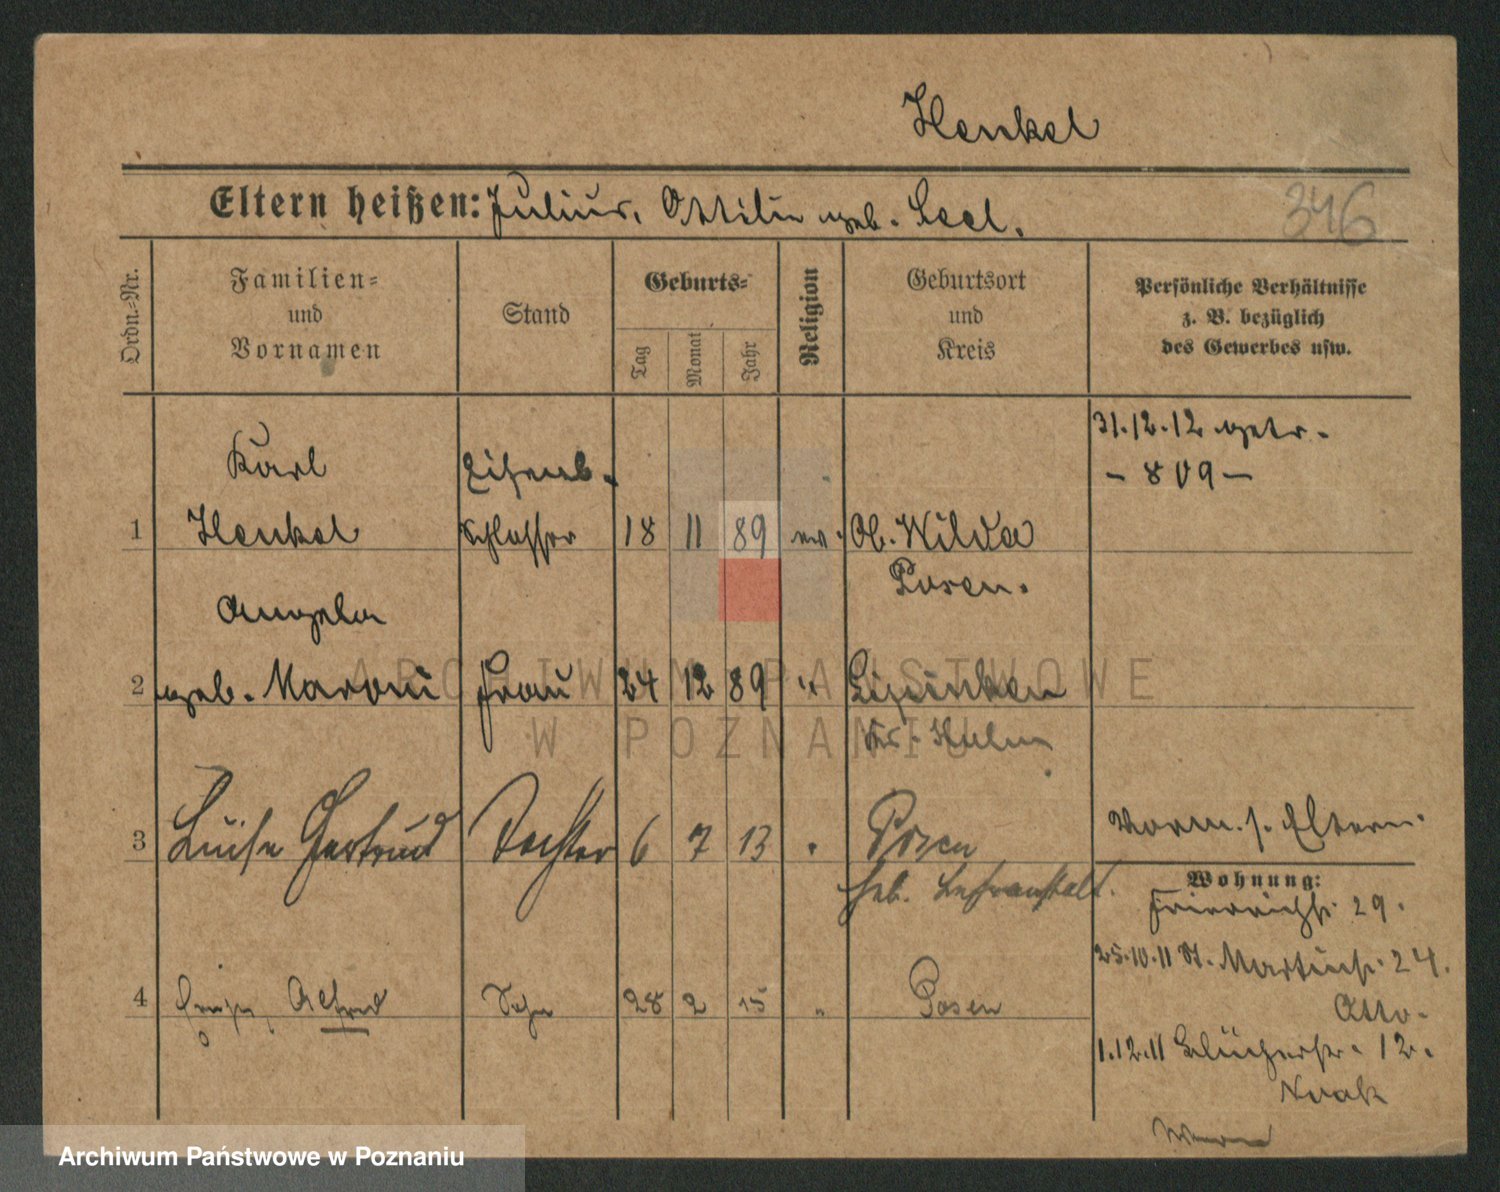 Henkel
Eltern heißen: Julius, Ottilie geb. Seel.
346
Ordn.-Nr.
Familien- und Vornamen
Stand
Geburts-
Tag
Monat
Jahr
Religion
Geburtsort und Kreis
Persönliche Verhältnisse z. B. bezüglich des Gewerbes usw.
31.12.12 getr.
- 809 -
Karl Eisenb.
1 Henkel Schlosser 18 11 89 ev. Ob. Wilda
Posen.
Angela
2 geb. Maroni Frau 24 12 89 " Lipinken
Kr. Kulm
3 Luise Gertrud Tochter 6 7 13 " Posen
Heb. Lehranstalt.
Vorm. s. Eltern.
Wohnung:
Friedrichstr. 29.
25.10.11 St. Martinstr. 24.
Otto.
4 Alfred Sohn 28 2 15 " Posen
1.12.11 Blücherstr. 12.
Noak
ARCHIWUM PAŃSTWOWE
W POZNANIU
Archiwum Państwowe w Poznaniu